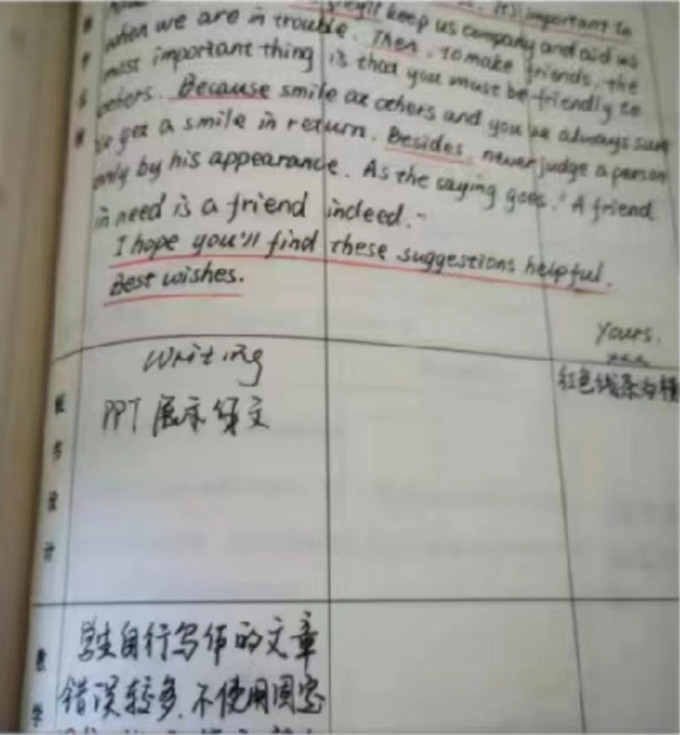 they'll keep us company and aid us
when we are in trouble. Then, to make friends, the
most important thing is that you must be friendly to
others. Because smile at others and you're always sure
to get a smile in return. Besides, never judge a person
only by his appearance. As the saying goes, "A friend
in need is a friend indeed."
I hope you'll find these suggestions helpful.
Best wishes.
Yours,
xxx
Writing
PPT 展示 范文
红色线条为
板书设计
学生自行写作的文章
错误较多,不使用固定
教学